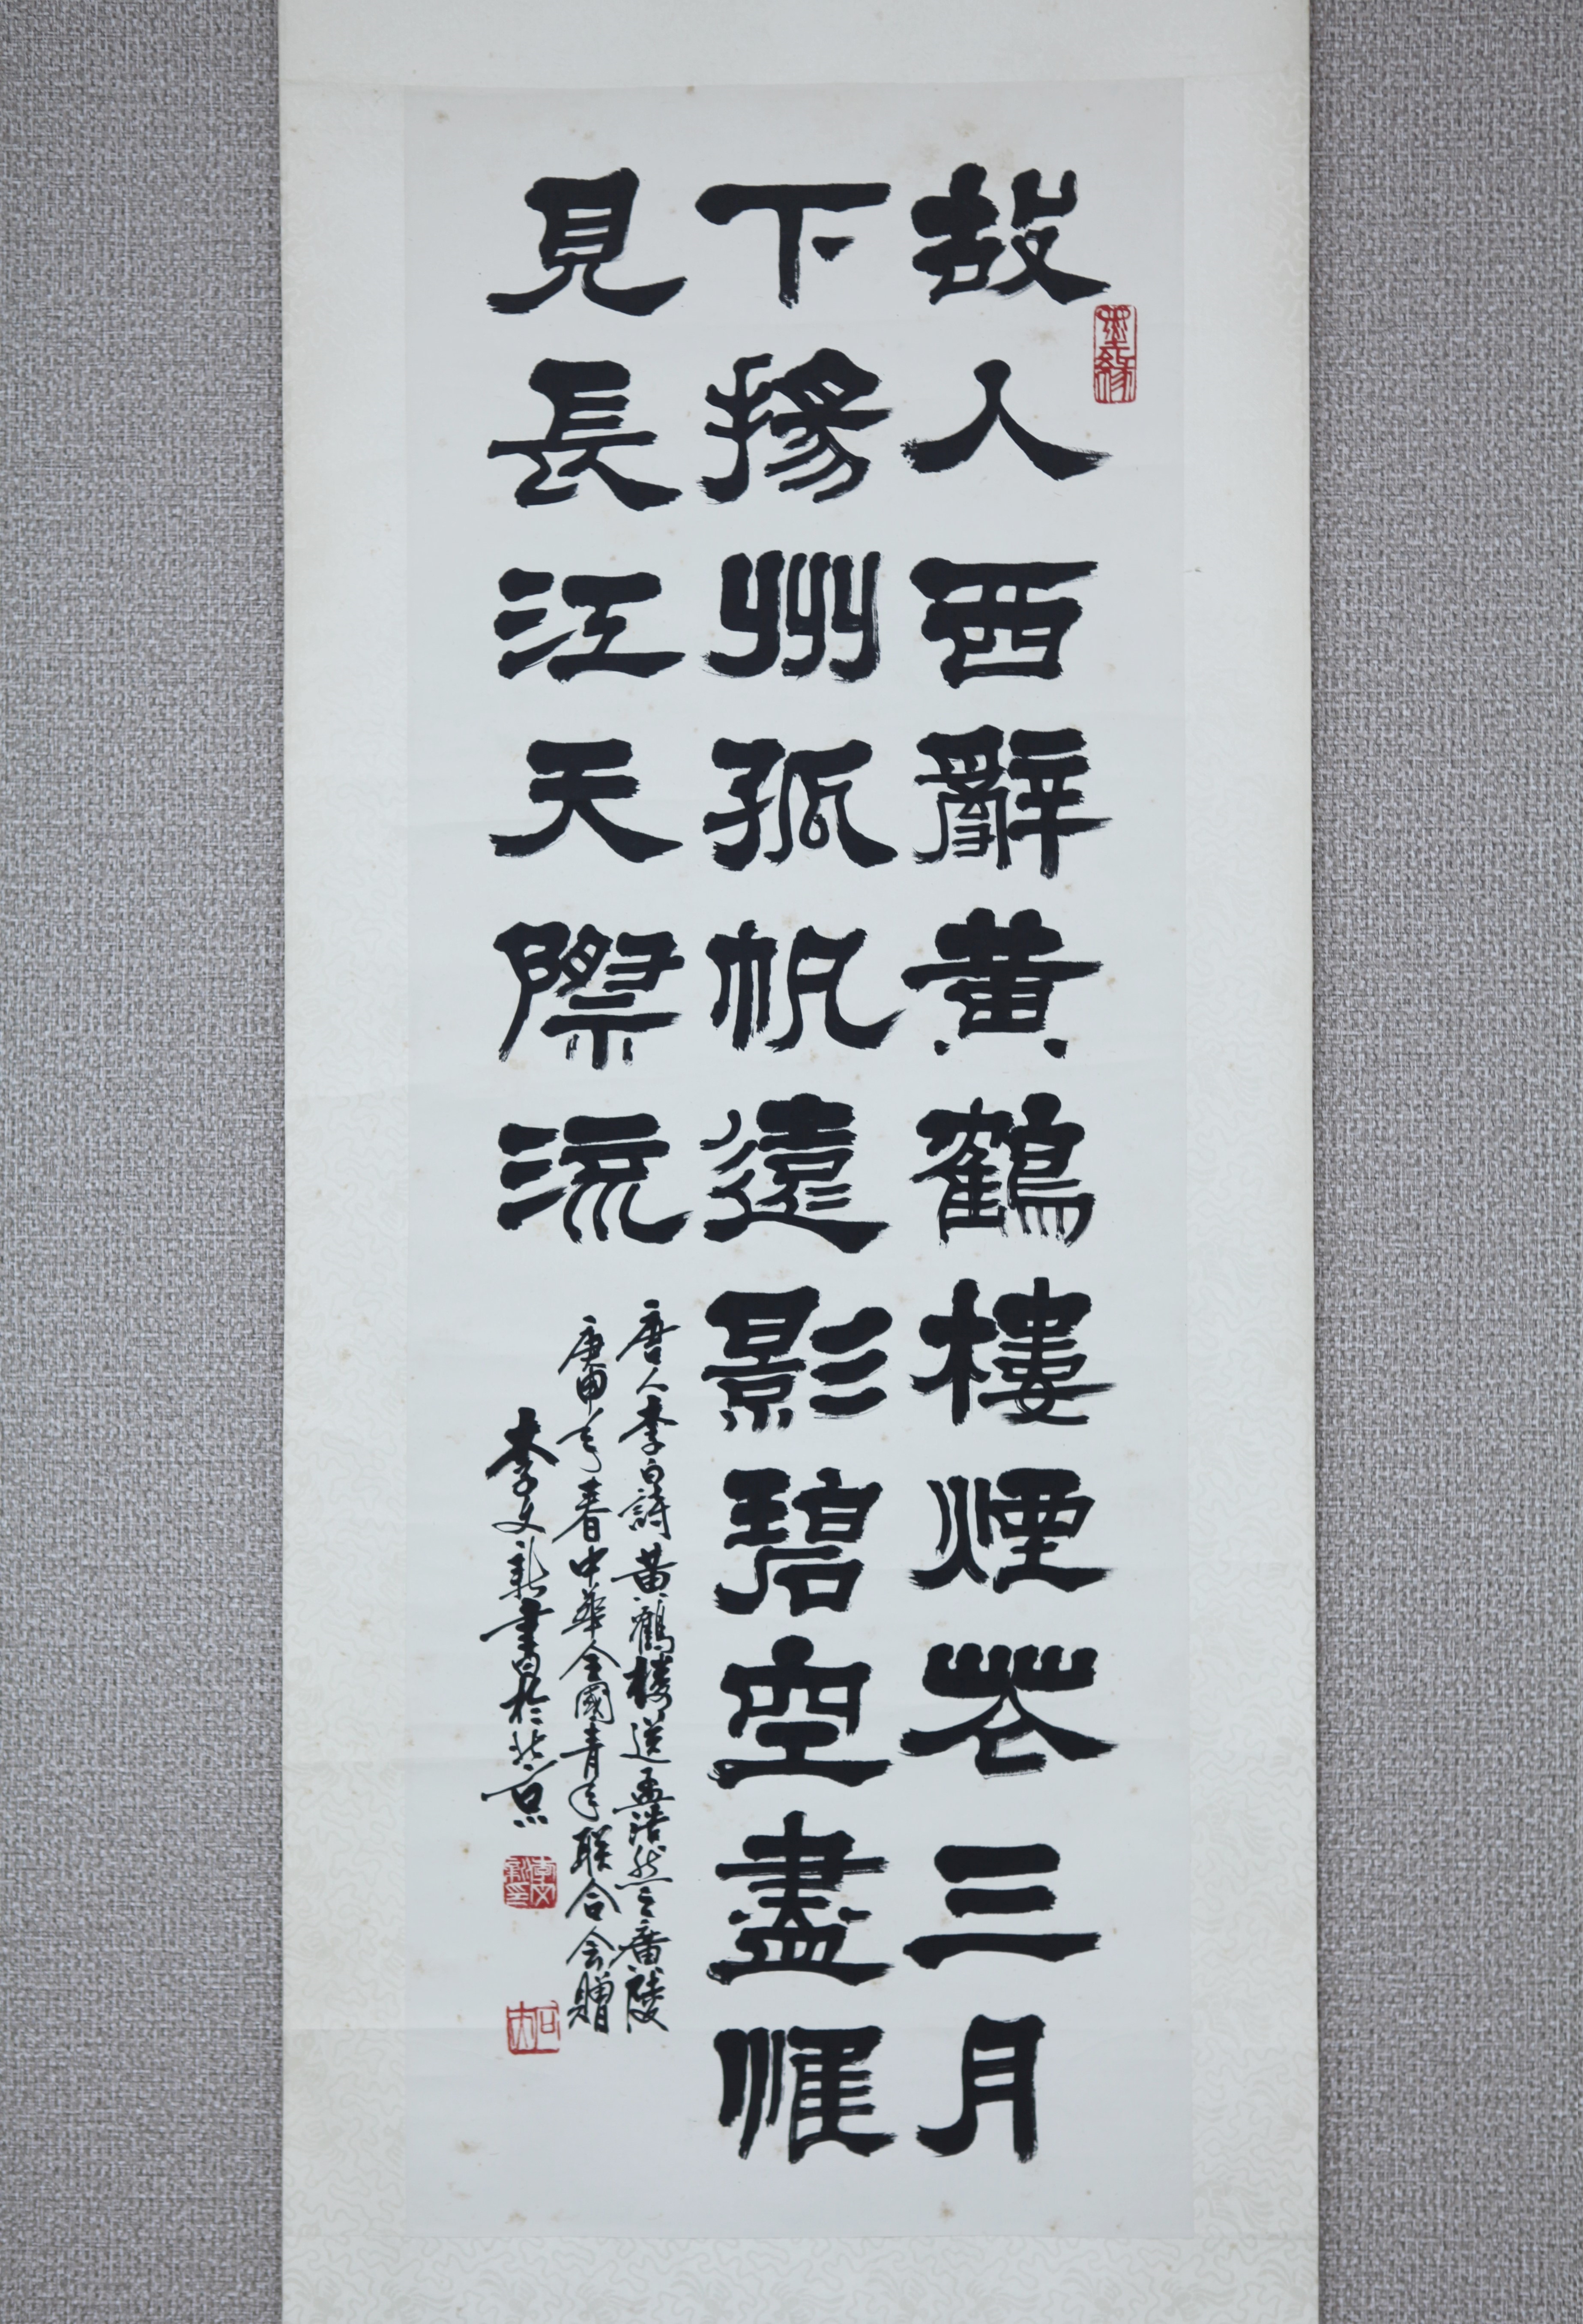 故人西辭黃鶴樓煙花三月
墨緣
下揚州孤帆遠影碧空盡惟
見長江天際流
唐人李白詩黃鶴樓送孟浩然之廣陵
庚申之春中華全國青年联合会贈
李文新書於北京